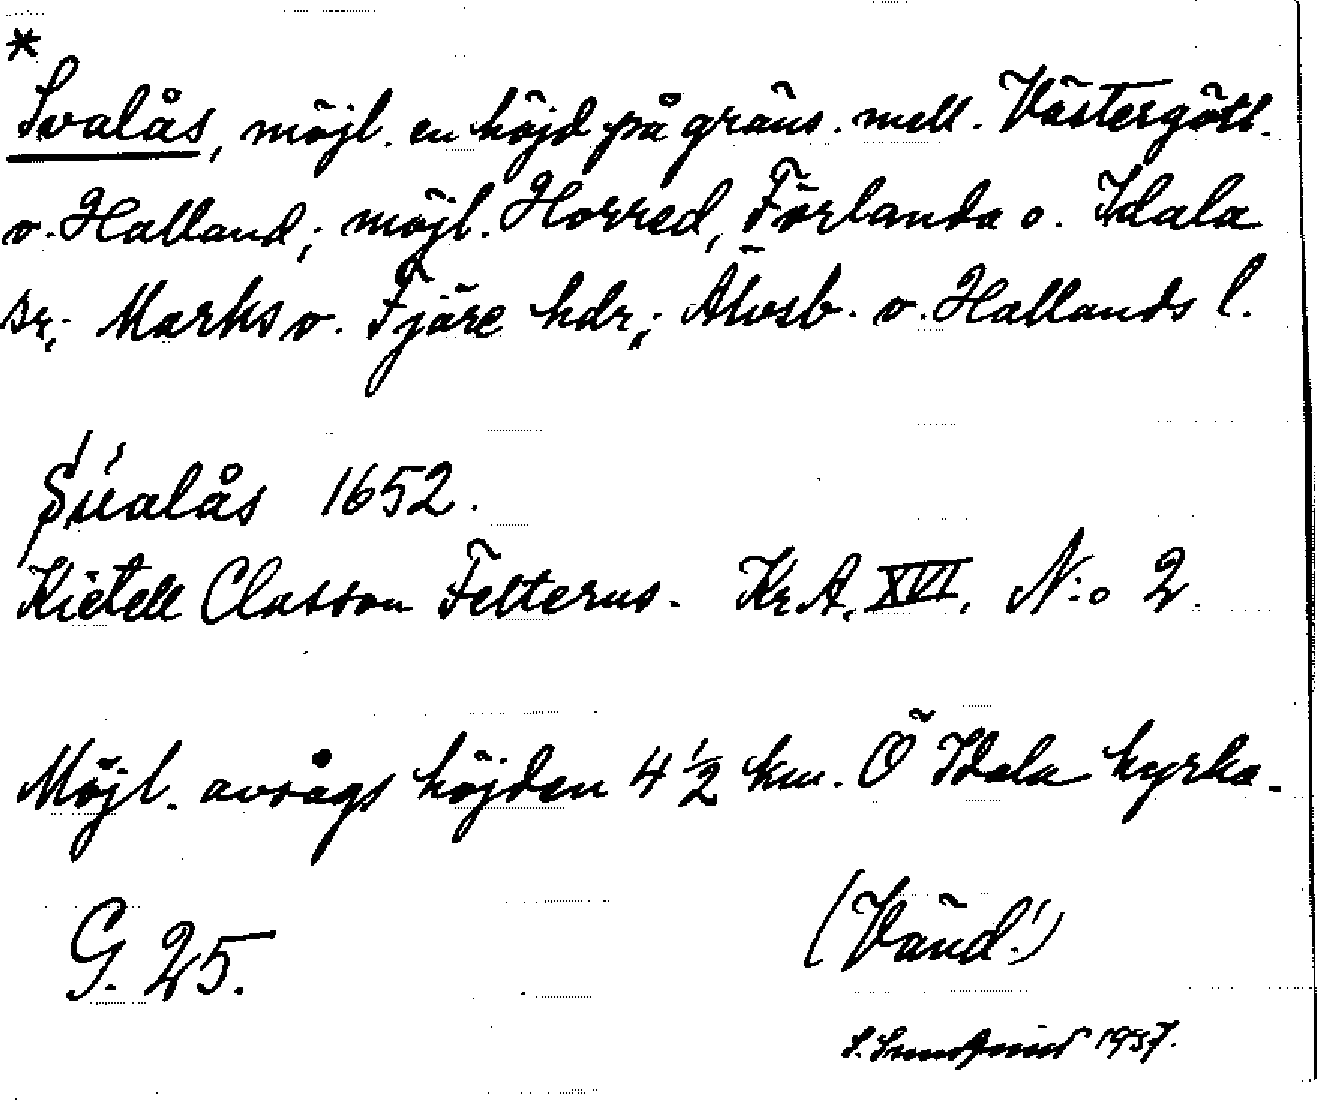 *
Svalås, möjl. en höjd på gräns. mell. Västergötl.
o. Halland; möjl. Horred, Förlanda o. Idala
sr; Marks o. Fjäre hdr; Älvsb. o. Hallands l.
Sualås 1652.
Kietell Classon Felterus. Kr.A. XVI. N:o 2.
Möjl. avsågs höjden 4 1/2 km. Ö Idala kyrka.
G. 25.
(Vänd!)
1937.